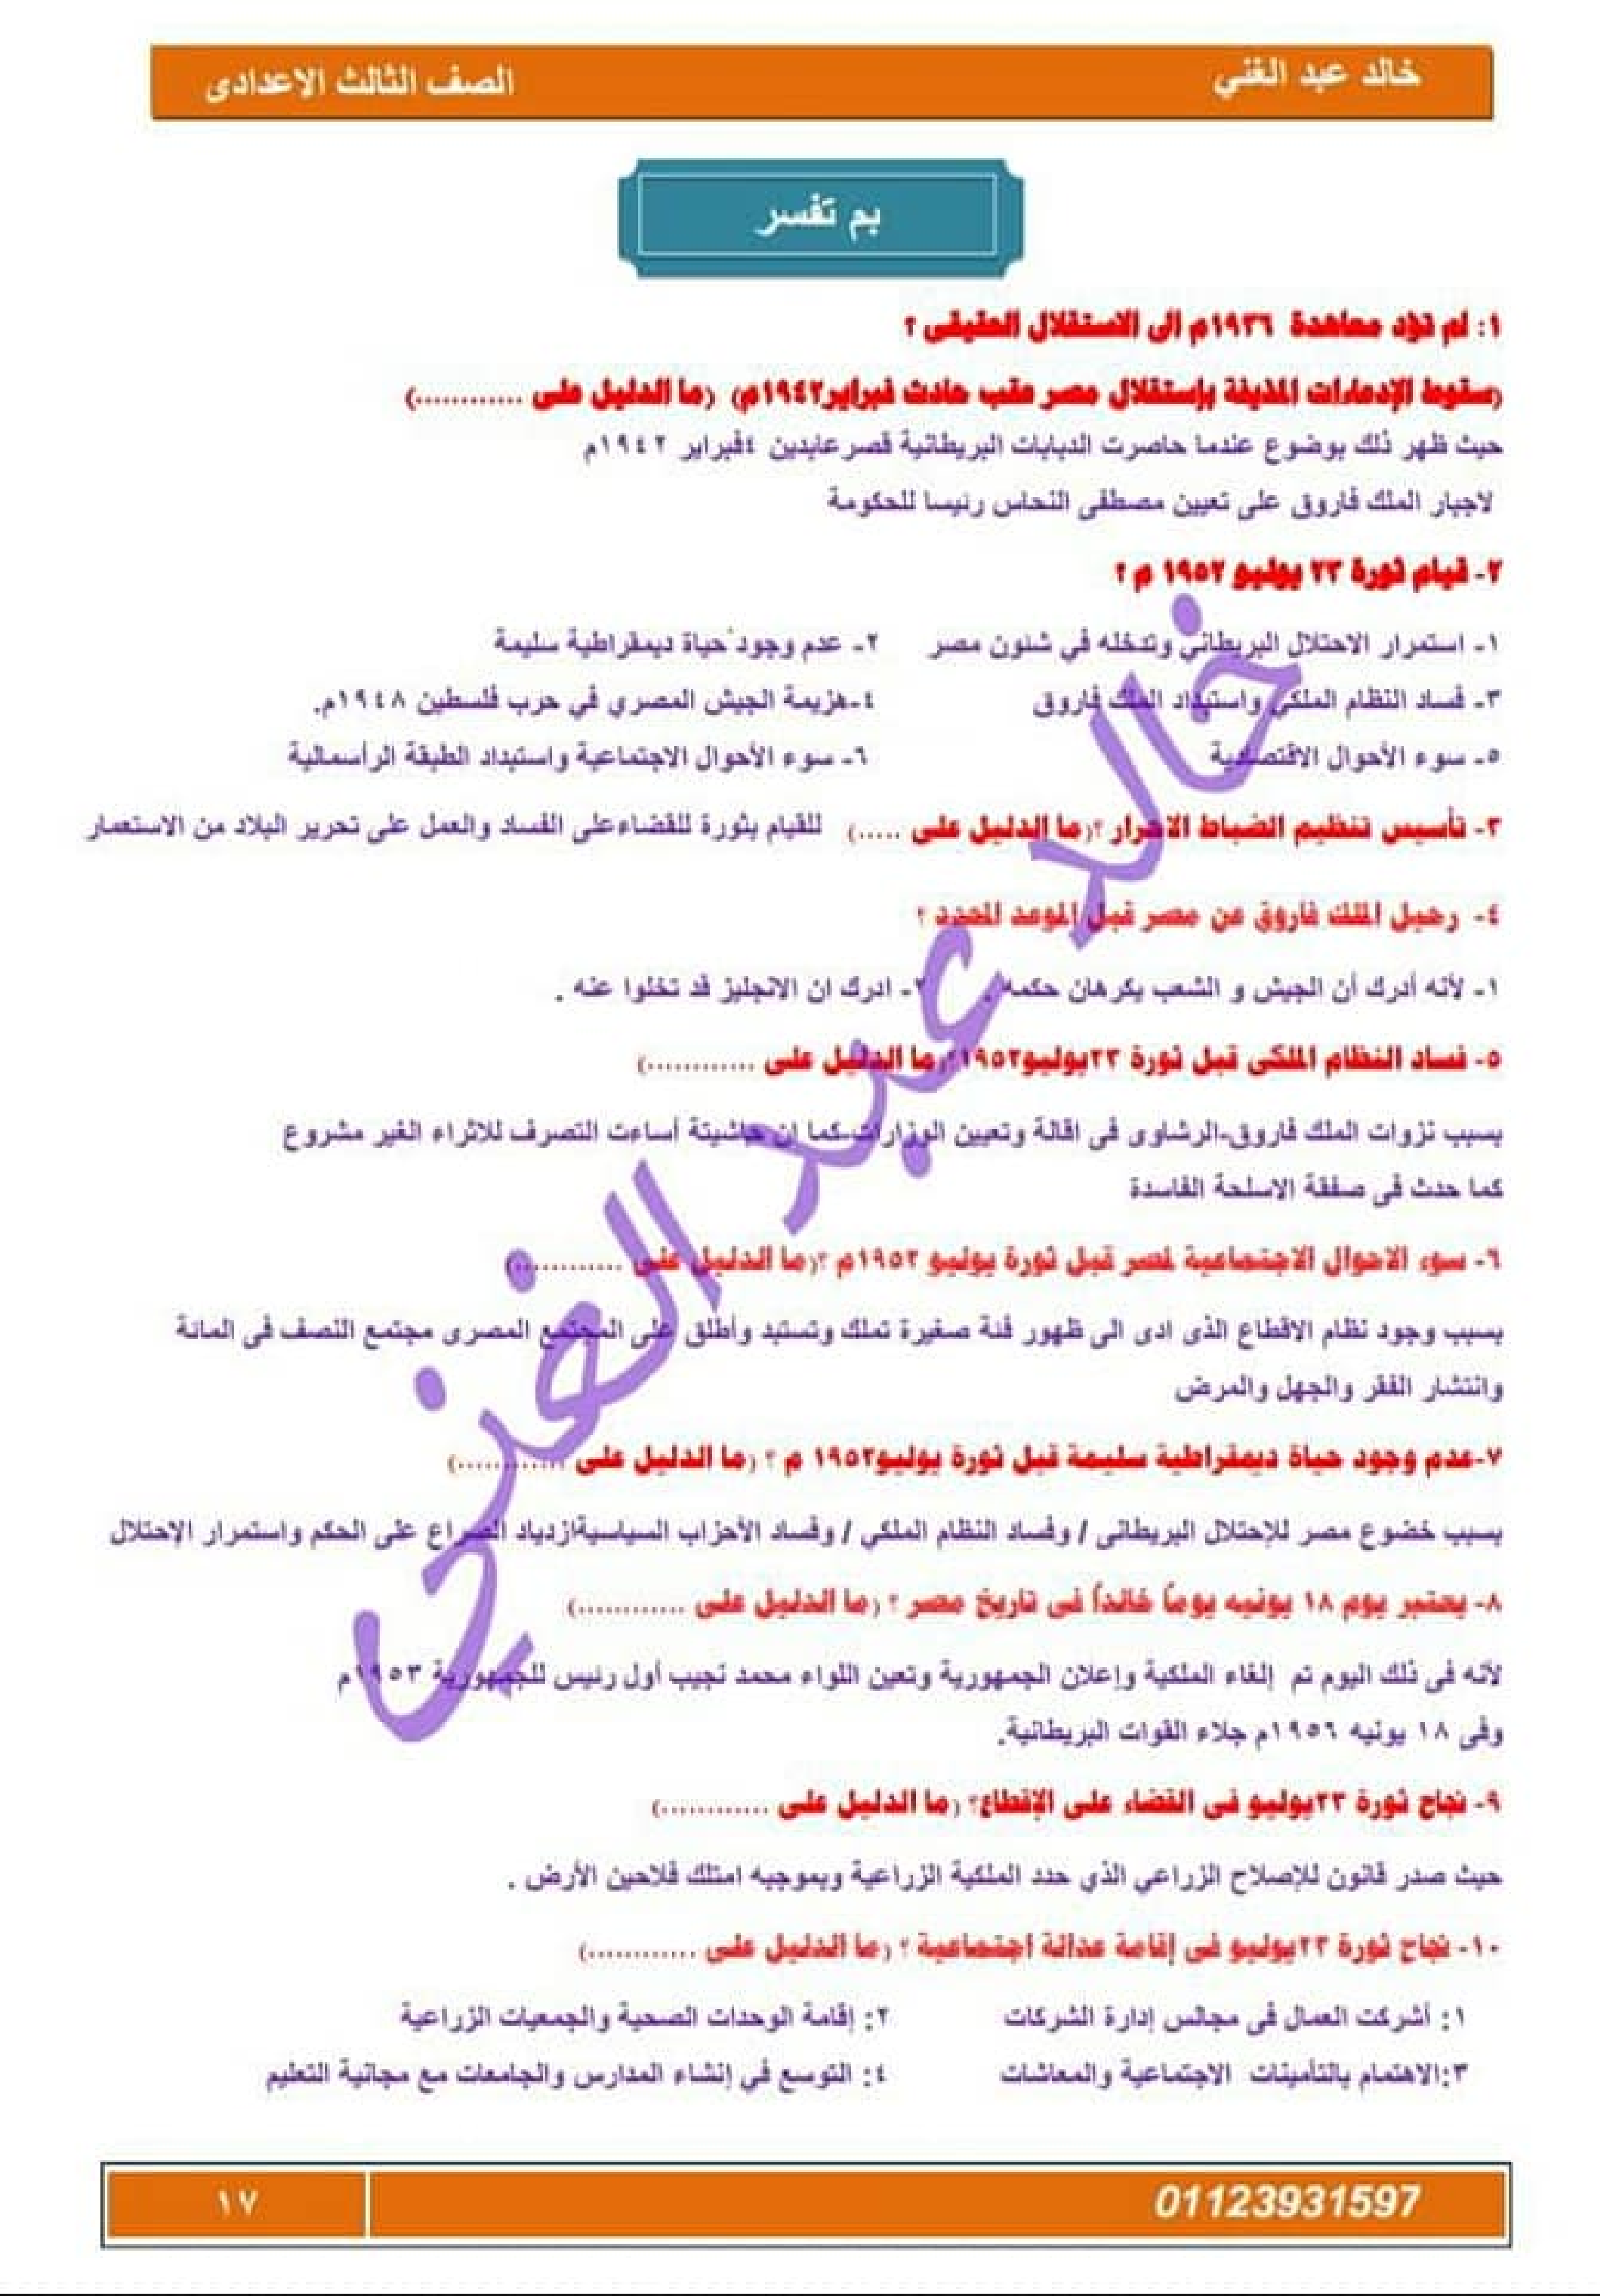 خالد عبد الغني
الصف الثالث الاعدادى
بم تفسر
١: لم تؤد معاهدة ١٩٣٦م الى الاستقلال الحقيقى ؟
(سقوط الإدعاءات المزيفة بإستقلال مصر عقب حادث فبراير١٩٤٢م) (ما الدليل على ............)
حيث ظهر ذلك بوضوع عندما حاصرت الدبابات البريطانية قصر عابدين ٤فبراير ١٩٤٢م
لاجبار الملك فاروق على تعيين مصطفى النحاس رئيسا للحكومة
٢- قيام ثورة ٢٣ يوليو ١٩٥٢ م ؟
١- استمرار الاحتلال البريطاني وتدخله في شئون مصر ٢- عدم وجود حياة ديمقراطية سليمة
٣- فساد النظام الملكي واستبداد الملك فاروق ٤-هزيمة الجيش المصري في حرب فلسطين ١٩٤٨م.
٥- سوء الأحوال الاقتصادية ٦- سوء الأحوال الاجتماعية واستبداد الطبقة الرأسمالية
٣- تأسيس تنظيم الضباط الاحرار ؟(ما الدليل على .....) للقيام بثورة للقضاءعلى الفساد والعمل على تحرير البلاد من الاستعمار
٤- رحيل الملك فاروق عن مصر قبل الموعد المحدد ؟
١- لأنه أدرك أن الجيش و الشعب يكرهان حكمه . ٢- ادرك ان الانجليز قد تخلوا عنه .
٥- فساد النظام الملكى قبل ثورة ٢٣يوليو١٩٥٢؟(ما الدليل على ............)
بسبب نزوات الملك فاروق-الرشاوى فى اقالة وتعيين الوزارات-كما ان حاشيتة أساءت التصرف للاثراء الغير مشروع
كما حدث فى صفقة الاسلحة الفاسدة
٦- سوء الاحوال الاجتماعية لمصر قبل ثورة يوليو ١٩٥٢م ؟(ما الدليل على ............)
بسبب وجود نظام الاقطاع الذى ادى الى ظهور فئة صغيرة تملك وتستبد وأطلق على المجتمع المصرى مجتمع النصف فى المائة
وانتشار الفقر والجهل والمرض
٧-عدم وجود حياة ديمقراطية سليمة قبل ثورة يوليو١٩٥٢ م ؟ (ما الدليل على ............)
بسبب خضوع مصر للإحتلال البريطانى / وفساد النظام الملكي / وفساد الأحزاب السياسيةازدياد الصراع على الحكم واستمرار الإحتلال
٨- يعتبر يوم ١٨ يونيه يوماً خالداً فى تاريخ مصر ؟ (ما الدليل على ............)
لأنه فى ذلك اليوم تم إلغاء الملكية وإعلان الجمهورية وتعين اللواء محمد نجيب أول رئيس للجمهورية ١٩٥٣م
وفى ١٨ يونيه ١٩٥٦م جلاء القوات البريطانية.
٩- نجاح ثورة ٢٣يوليو فى القضاء على الإقطاع؟ (ما الدليل على ............)
حيث صدر قانون للإصلاح الزراعي الذي حدد الملكية الزراعية وبموجبه امتلك فلاحين الأرض .
١٠- نجاح ثورة ٢٣يوليو فى إقامة عدالة اجتماعية ؟ (ما الدليل على ............)
١: أشركت العمال فى مجالس إدارة الشركات ٢: إقامة الوحدات الصحية والجمعيات الزراعية
٣:الاهتمام بالتأمينات الاجتماعية والمعاشات ٤: التوسع في إنشاء المدارس والجامعات مع مجانية التعليم
خالد عبد الغني
01123931597
١٧